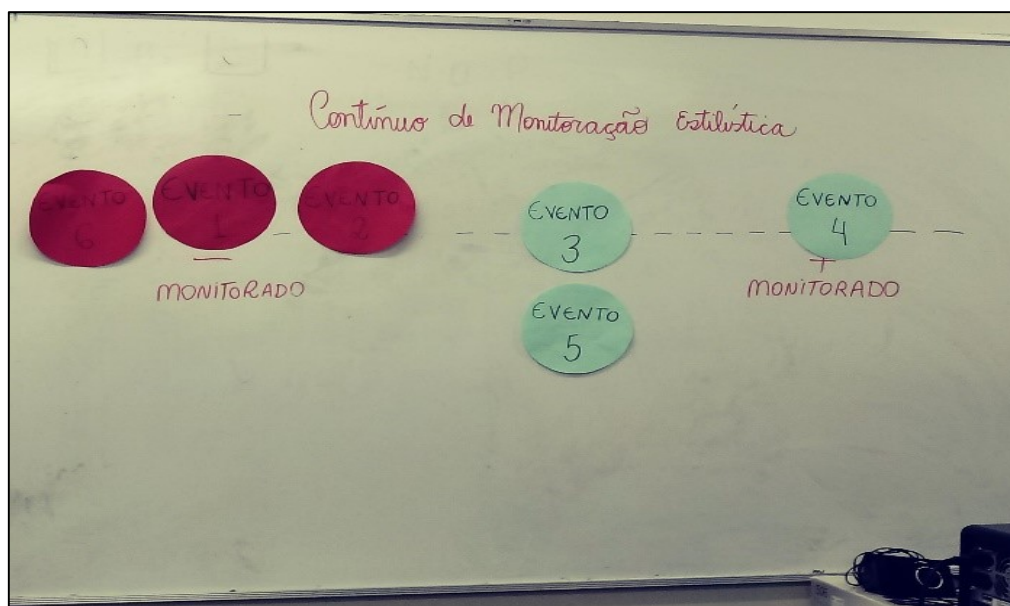 Contínuo de Monitoração Estilística
EVENTO
6
EVENTO
1
EVENTO
2
EVENTO
3
EVENTO
4
EVENTO
5
—
MONITORADO
+
MONITORADO